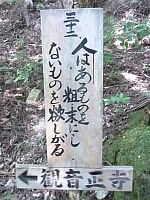 三十二
人はあるものを
粗末にし
ないものを欲しがる
観音正寺